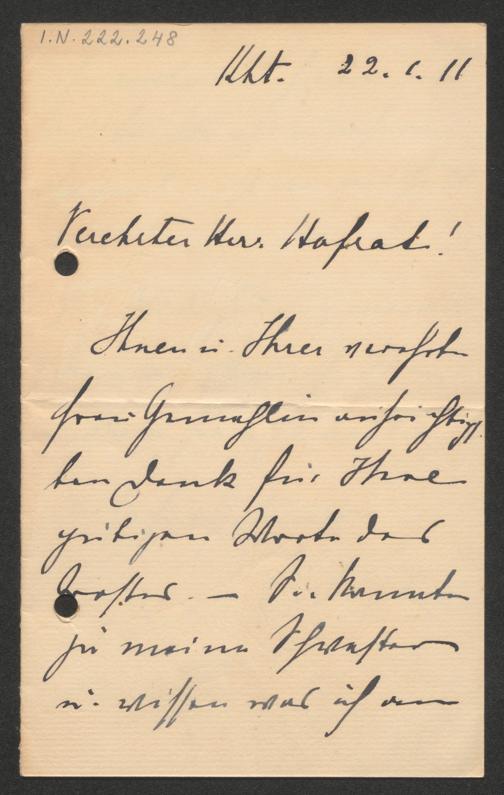 I.N. 222.248
Kht. 22.1.11
Verehrter Herr Hofrat!
Ihnen u. Ihrer verehrten
Frau Gemahlin aufrichtigs
ten Dank für Ihre
gütigen Worte des
Trostes. — Sie kannten
ja meine Schwester
u. wissen was ich an